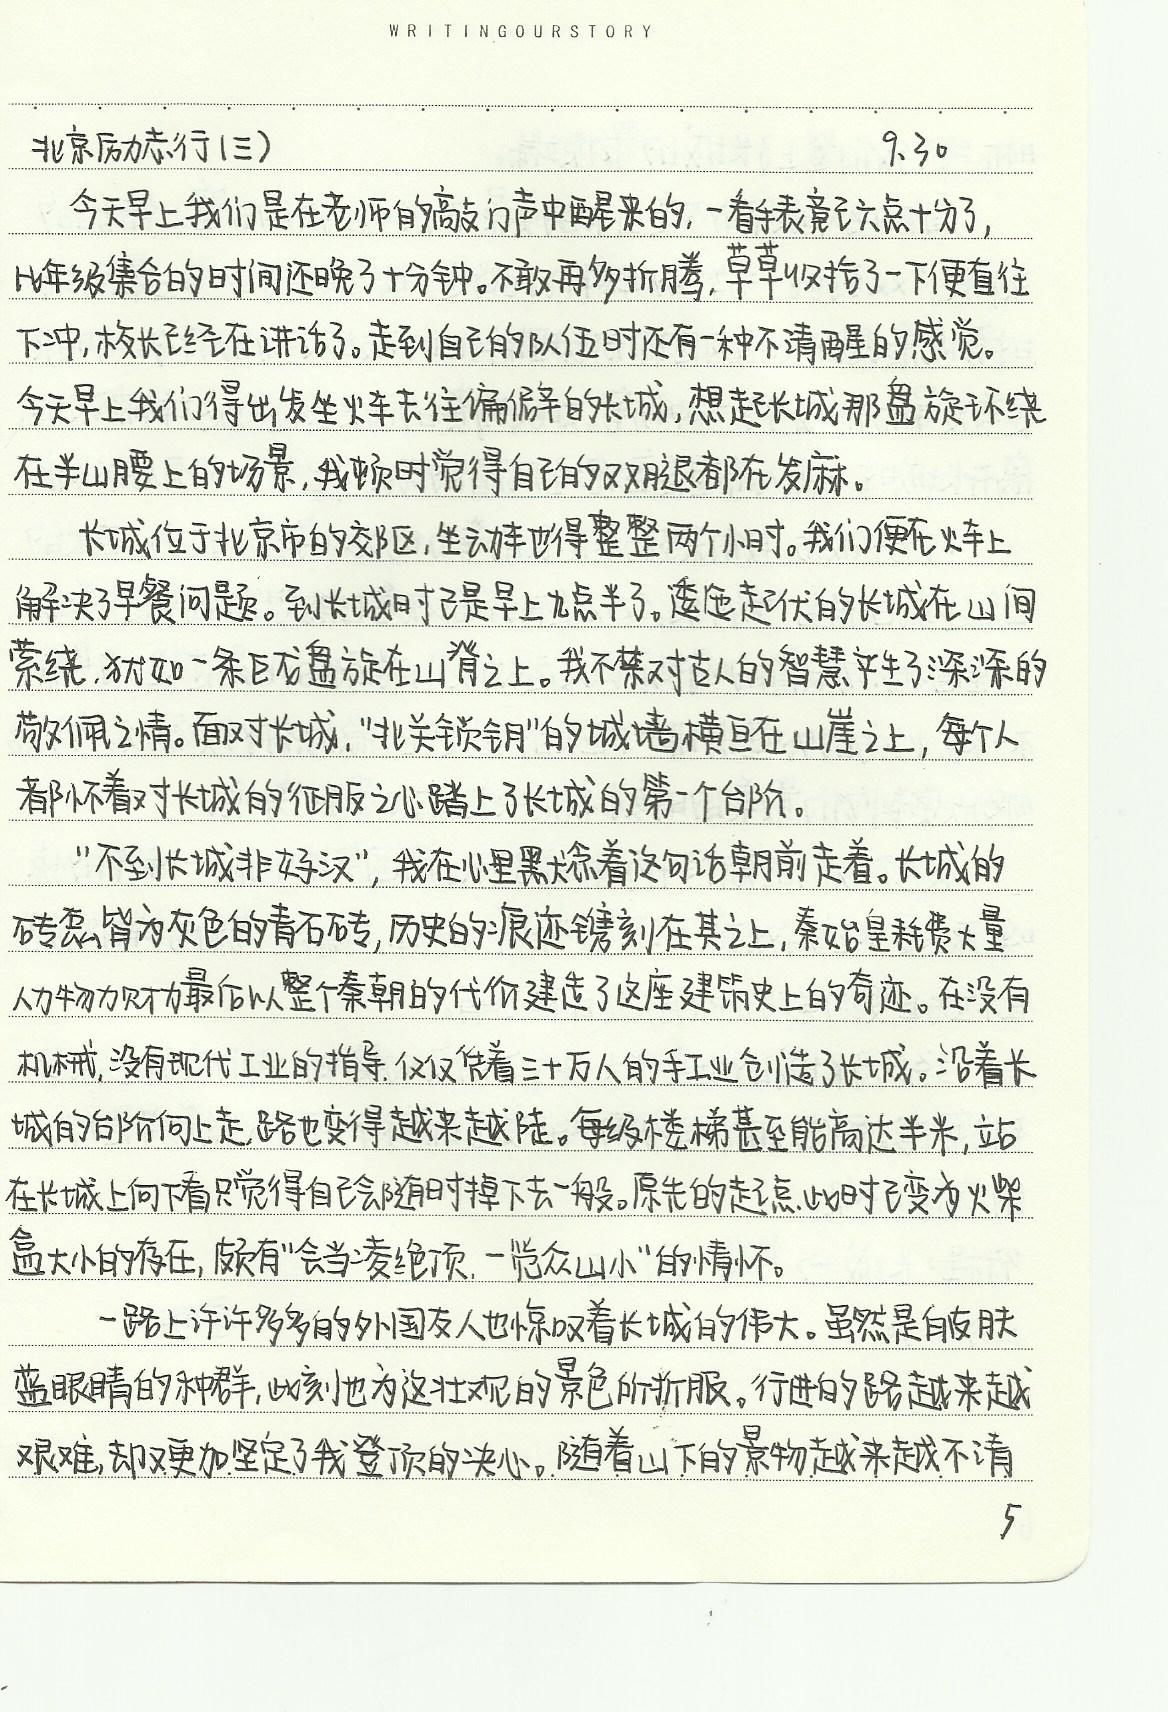 WRITINGOURSTORY
北京励志行(三) 9.30
今天早上我们是在老师的敲门声中醒来的,一看手表竟已六点十分了,
比年级集合的时间还晚了十分钟。不敢再多折腾,草草收拾了一下便直往
下冲,校长已经在讲话了。走到自己的队伍时还有一种不清醒的感觉。
今天早上我们得出发坐火车去往偏僻的长城,想起长城那盘旋环绕
在半山腰上的场景,我顿时觉得自己的双腿都在发麻。
长城位于北京市的郊区,坐动车也得整整两个小时。我们便在火车上
解决了早餐问题。到长城时已是早上九点半了。逶迤起伏的长城在山间
萦绕,犹如一条巨龙盘旋在山脊之上。我不禁对古人的智慧产生了深深的
敬佩之情。面对长城,“北关锁钥”的城墙横亘在山崖之上,每个人
都怀着对长城的征服之心踏上了长城的第一个台阶。
“不到长城非好汉”,我在心里默念着这句话朝前走着。长城的
砖磊皆为灰色的青石砖,历史的痕迹镌刻在其之上,秦始皇耗费大量
人力物力财力最后以整个秦朝的代价建造了这座建筑史上的奇迹。在没有
机械,没有现代工业的指导,仅仅凭着三十万人的手工业创造了长城。沿着长
城的台阶向上走,路也变得越来越陡。每级楼梯甚至能高达半米,站
在长城上向下看只觉得自己会随时掉下去一般。原先的起点,此时已变为火柴
盒大小的存在,颇有“会当凌绝顶,一览众山小”的情怀。
一路上许许多多的外国友人也惊叹着长城的伟大。虽然是白皮肤
蓝眼睛的种群,此刻也为这壮观的景色所折服。行进的路越来越
艰难,却又更加坚定了我登顶的决心。随着山下的景物越来越不清
5